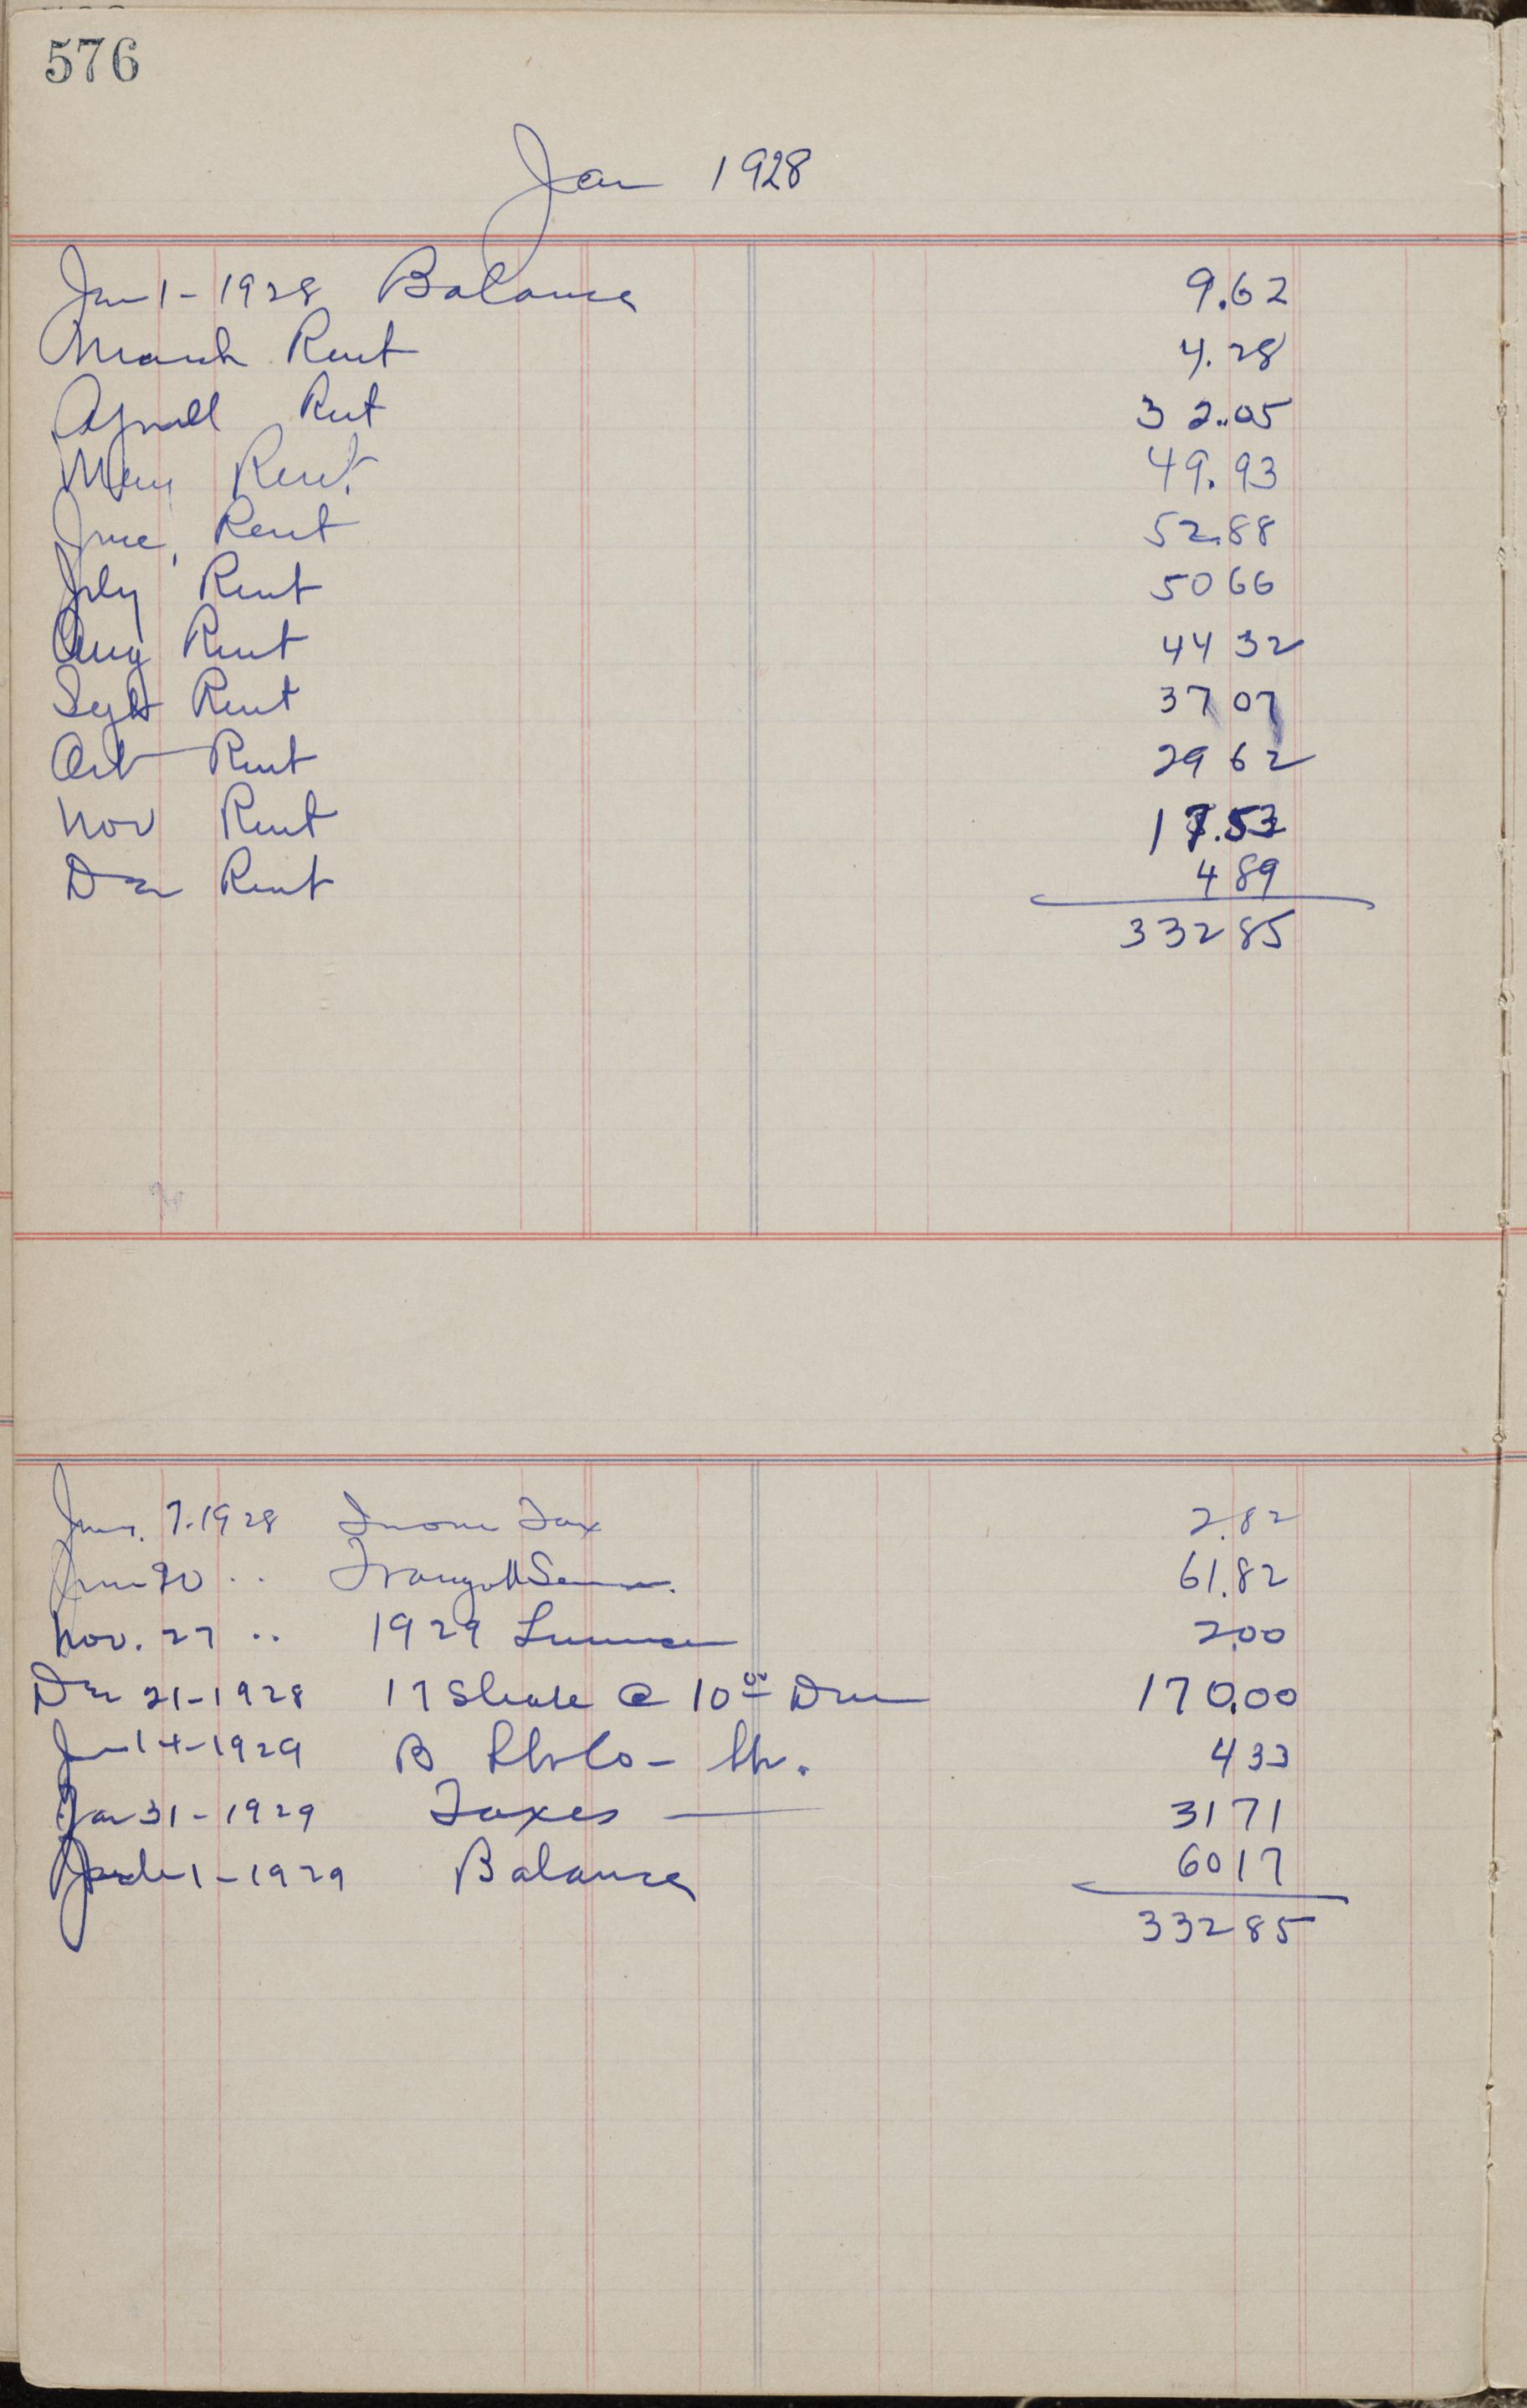 576
Jan 1928
Jan 1 - 1928 Balance 9.62
March Rent 4.28
Aprill Rent 32.05
May Rent. 49.93
June, Rent 52.88
July Rent 50 66
Aug Rent 44 32
Sept Rent 37 07
Oct Rent 29 62
Nov Rent 17.53
Dec Rent 4 89
332 85
Jan. 7. 1928 Income Tax 2.82
June 20 .. 61.82
Nov. 27 .. 1929 License 2.00
Dec 21 - 1928 17 Share @ 10 00 170.00
Jan 14 - 1929 B 4 33
Jan 31 - 1929 Taxes — 31 71
1 - 1929 Balance 60 17
332 85